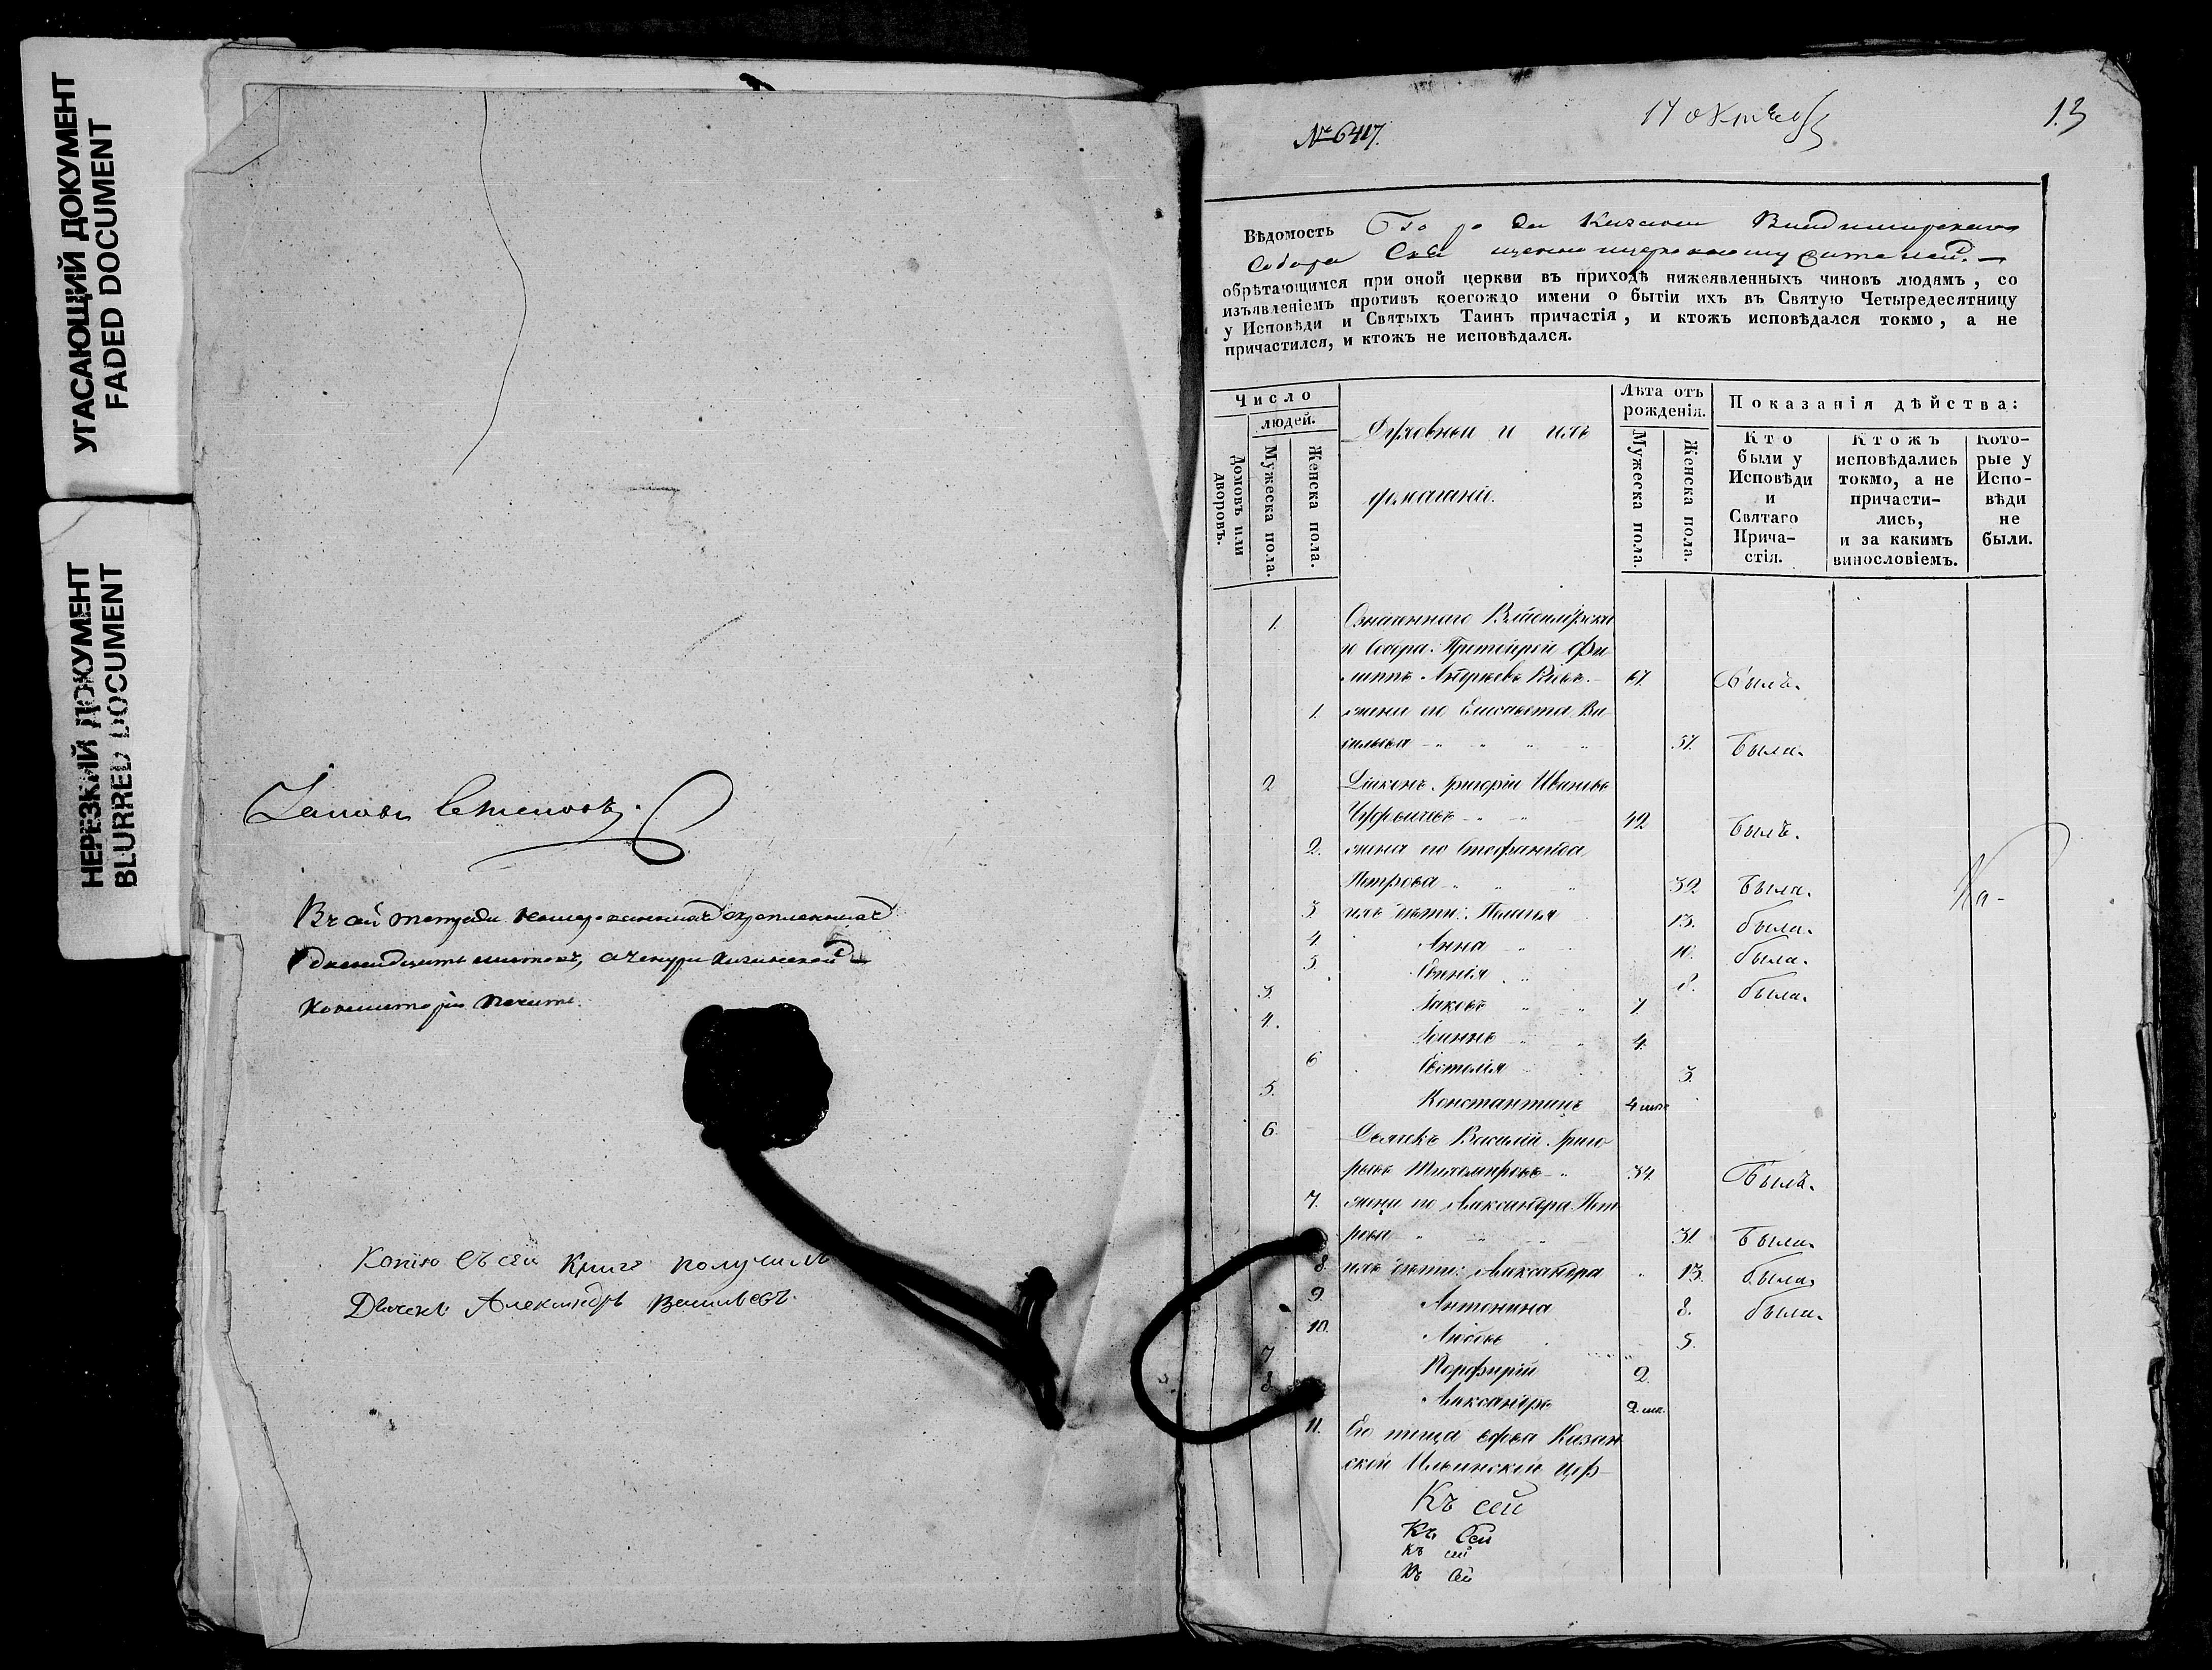 УГАСАЮЩИЙ ДОКУМЕНТ
FADED DOCUMENT
НЕРЕЗКИЙ ДОКУМЕНТ
BLURRED DOCUMENT
Въ сей тетради
двенадцать листовъ, а
Консисторіи печать.
Копію съ сей книги получилъ
Дьячекъ Александръ Васильевъ.
№ 6417.
13
Вѣдомость Города Казани Владимирскаго
Собора
обрѣтающимся при оной церкви въ приходѣ нижеявленныхъ чиновъ людямъ, со
изъявленіемъ противъ коегождо имени о бытіи ихъ въ Святую Четыредесятницу
у Исповѣди и Святыхъ Таинъ причастія, и ктожъ исповѣдался токмо, а не
причастился, и ктожъ не исповѣдался.
Число
людей.
Домовъ или дворовъ.
Мужеска пола.
Женска пола.
Духовныи и ихъ
домашніе.
Лѣта отъ
рожденія.
Мужеска пола.
Женска пола.
Показанія дѣйства:
Кто
были у
Исповѣди
и
Святаго
Прича-
стія.
Ктожъ
исповѣдались
токмо, а не
причасти-
лись,
и за какимъ
винословіемъ.
Кото-
рые у
Испо-
вѣди
не
были.
1. Означеннаго Владимірска
го Собора Протоіерей Фи
липпъ 67. Былъ.
1. жена его Елисавета Ва
сильева 57. Была.
2 Діаконъ Григорій Ивановъ
42 Былъ.
2. жена его Стефанида
Петрова 32 Была.
3 ихъ дѣти: 13. была.
4. Анна 10. была.
5. 8. была.
3. Іаковъ 7
4. Іоаннъ 4.
6 3.
5. Константинъ 4
6. Дьячекъ Василій Григо
рьевъ Тихомировъ 34. Былъ.
7. жена его Александра Пет
рова 31. Была.
8. ихъ дѣти: Александра 13. была.
9. Антонина 8. была.
10. Любовь 5.
7 Порфирій 2.
8 Александръ 2
11. Его теща вдова Казан
ской Ильинской
Къ сей
Къ Сей
къ сей
Къ Сей